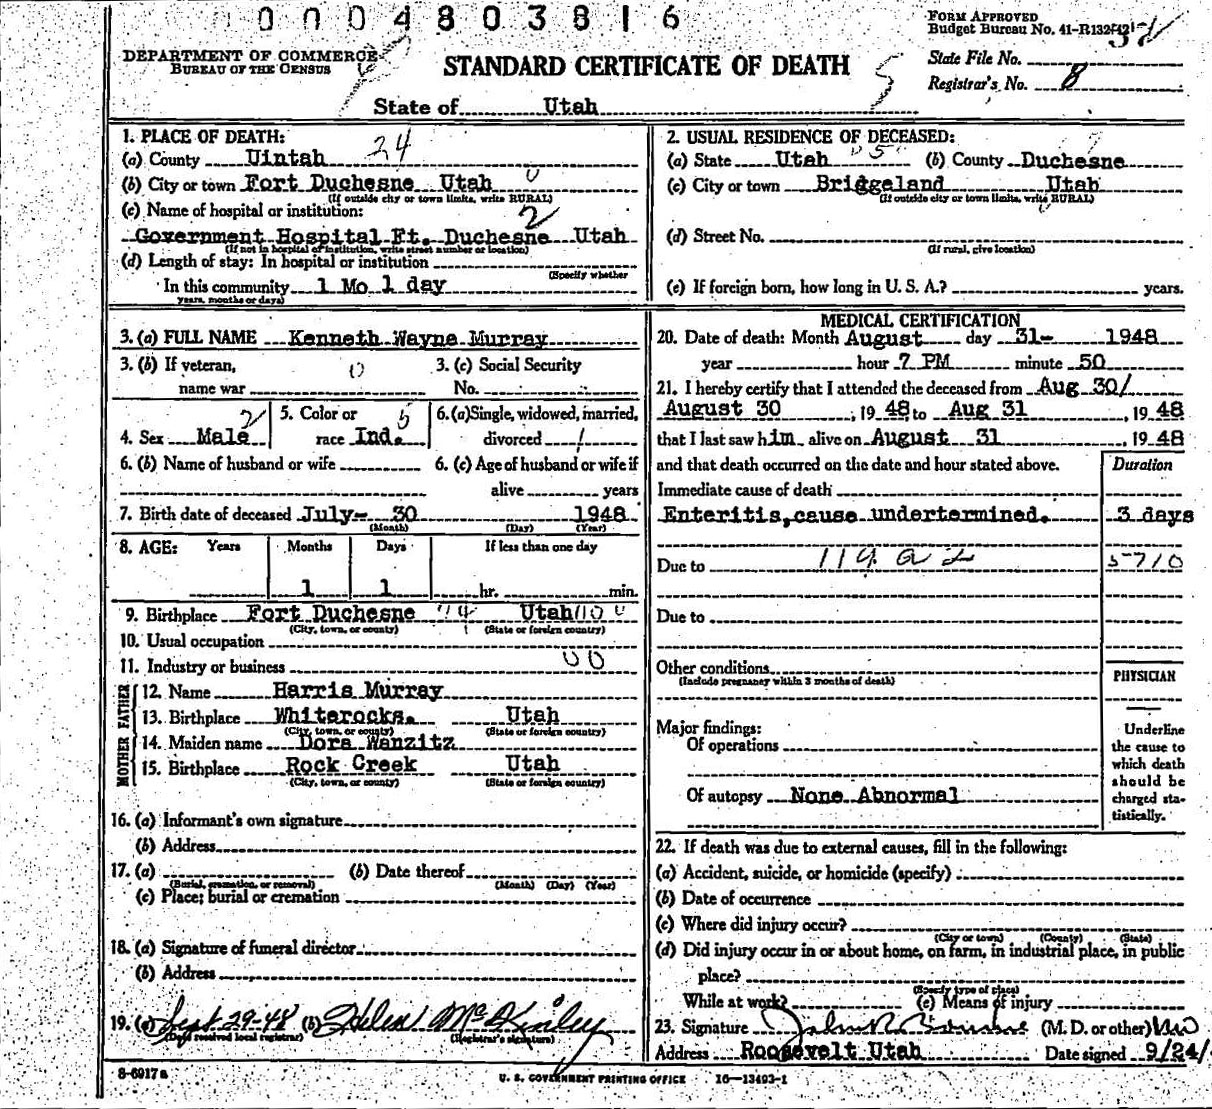 0004803816
FORM APPROVED
Budget Bureau No. 41-R132-42
DEPARTMENT OF COMMERCE
BUREAU OF THE CENSUS
STANDARD CERTIFICATE OF DEATH
State File No.
Registrar's No. 8
State of Utah
1. PLACE OF DEATH: 24
(a) County Uintah
(b) City or town Fort Duchesne Utah 0
(If outside city or town limits, write RURAL)
(c) Name of hospital or institution: 2
Government Hospital Ft. Duchesne Utah
(If not in hospital or institution, write street number or location)
(d) Length of stay: In hospital or institution
(Specify whether
In this community 1 Mo 1 day
years, months or days)
2. USUAL RESIDENCE OF DECEASED:
(a) State Utah (b) County Duchesne
(c) City or town Briggeland Utah
(If outside city or town limits, write RURAL)
(d) Street No.
(If rural, give location)
(e) If foreign born, how long in U. S. A.? years.
3. (a) FULL NAME Kenneth Wayne Murray
3. (b) If veteran, name war 0
3. (c) Social Security No.
4. Sex Male 2
5. Color or race Ind. 5
6. (a) Single, widowed, married, divorced 1
6. (b) Name of husband or wife
6. (c) Age of husband or wife if alive years
7. Birth date of deceased July- 30 1948
(Month) (Day) (Year)
8. AGE: Years Months Days If less than one day
1 1 hr. min.
9. Birthplace Fort Duchesne Utah
(City, town, or county) (State or foreign country)
10. Usual occupation
11. Industry or business 00
FATHER
12. Name Harris Murray
13. Birthplace Whiterocks. Utah
(City, town, or county) (State or foreign country)
MOTHER
14. Maiden name Dora Wanzitz
15. Birthplace Rock Creek Utah
(City, town, or county) (State or foreign country)
16. (a) Informant's own signature
(b) Address
17. (a) (b) Date thereof
(Burial, cremation, or removal) (Month) (Day) (Year)
(c) Place; burial or cremation
18. (a) Signature of funeral director
(b) Address
19. (a) Sept 29-48 (b) Helen McKinley
(Date received local registrar) (Registrar's signature)
MEDICAL CERTIFICATION
20. Date of death: Month August day 31- 1948
year hour 7 PM minute 50
21. I hereby certify that I attended the deceased from Aug 30/
August 30, 1948 to Aug 31, 1948
that I last saw him alive on August 31, 1948
and that death occurred on the date and hour stated above.
Duration
Immediate cause of death
Enteritis, cause undertermined. 3 days
Due to 119 a 2 5710
Due to
Other conditions
(Include pregnancy within 3 months of death)
PHYSICIAN
Major findings:
Of operations
Of autopsy None Abnormal
Underline
the cause to
which death
should be
charged sta-
tistically.
22. If death was due to external causes, fill in the following:
(a) Accident, suicide, or homicide (specify)
(b) Date of occurrence
(c) Where did injury occur?
(City or town) (County) (State)
(d) Did injury occur in or about home, on farm, in industrial place, in public
place?
(Specify type of place)
While at work? (e) Means of injury
23. Signature John R. (M. D. or other) MD
Address Roosevelt Utah Date signed 9/24/
8-6917a
U. S. GOVERNMENT PRINTING OFFICE 16-13493-1